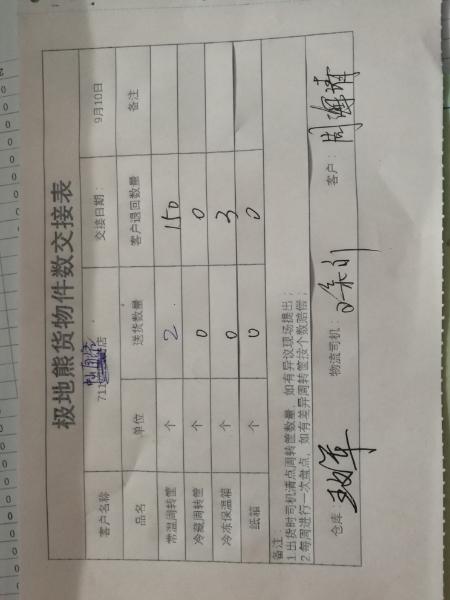 极地熊货物件数交接表
客户名称 711 店 交接日期： 9月10日
品名 单位 送货数量 客户退回数量 备注
常温周转筐 个 2 150
冷藏周转筐 个 0 0
冷冻保温箱 个 0 3
纸箱 个 0 0
备注
1.出货时司机清点周转筐数量，如有异议现场提出；
2.每周进行一次盘点，如有差异周转筐按个数赔偿；
仓库： 物流司机： 客户：